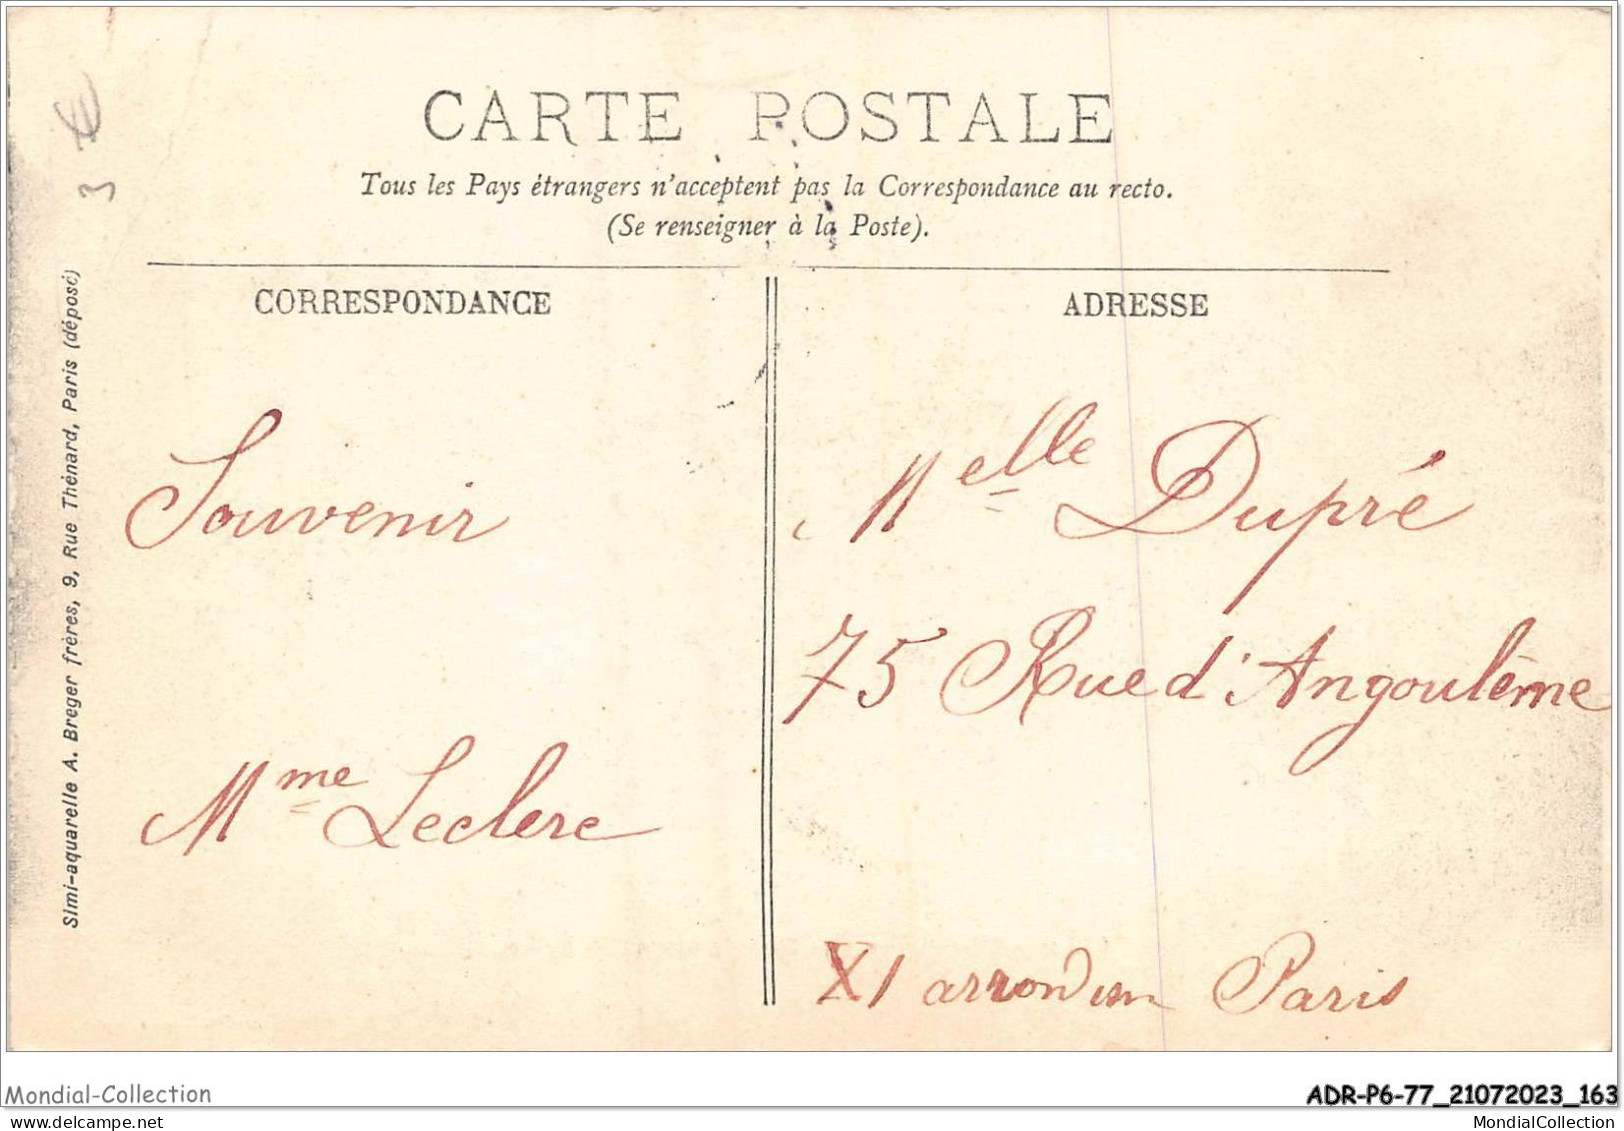 CARTE POSTALE
Tous les Pays étrangers n'acceptent pas la Correspondance au recto.
(Se renseigner à la Poste).
CORRESPONDANCE
Souvenir
Mme Leclerc
ADRESSE
Melle Dupré
75 Rue d'Angoulême
XI arrondism Paris
Simi-aquarelle A. Breger frères, 9, Rue Thénard, Paris (déposé)
3 €
Mondial-Collection
ADR-P6-77_21072023_163
MondialCollection
MondialCollection